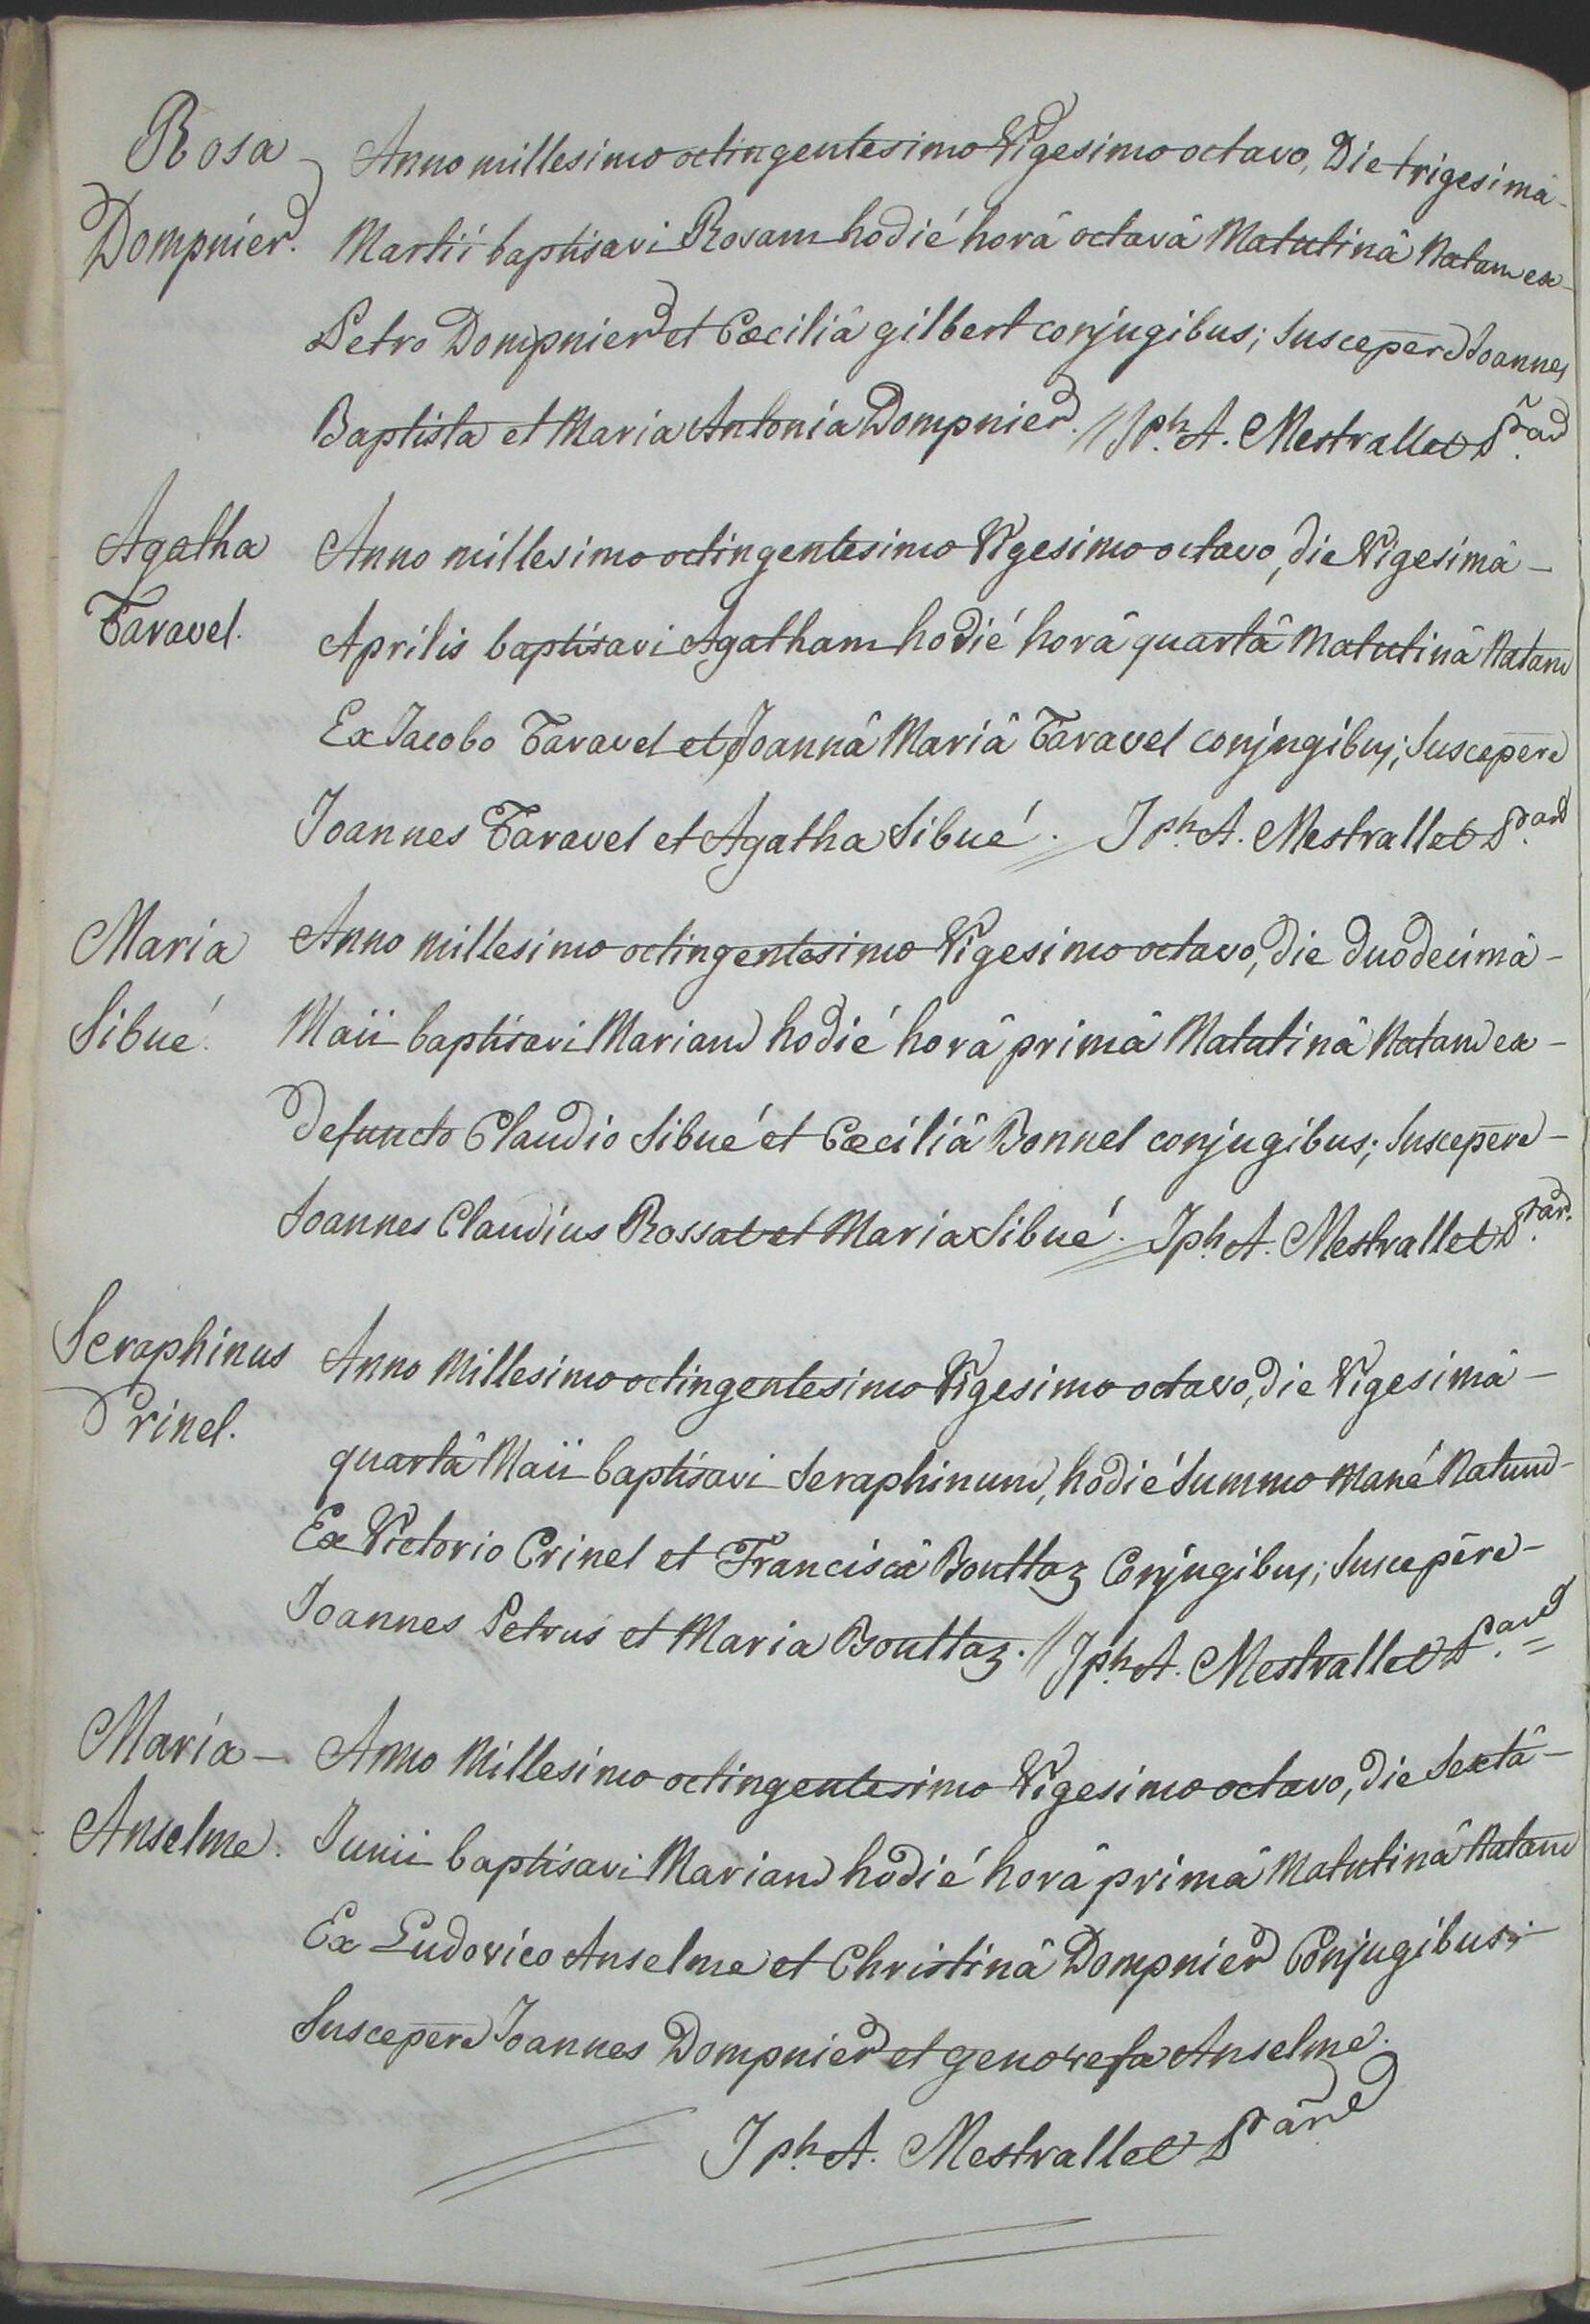 Rosa
Dompnier.
Anno millesimo octingentesimo Vigesimo octavo, Die trigesimâ-
Martii baptisavi Rosam hodié horâ octavâ Matutinâ Natam ex-
Petro Dompnier et Cæciliâ gilbert conjugibus; Suscepere Joannes
Baptista et Maria Antonia Dompnier. // Jph. A. Mestrallet P.
Agatha
Taravel.
Anno millesimo octingentesimo Vigesimo octavo, die Vigesimâ-
Aprilis baptisavi Agatham hodié horâ quartâ Matutinâ Natam
Ex Jacobo Taravel et Joannâ Mariâ Taravel conjugibus; Suscepere
Joannes Taravel et Agatha Sibué. Jph. A. Mestrallet P.
Maria
Sibué.
Anno millesimo octingentesimo Vigesimo octavo, die duodecimâ-
Maii baptisavi Mariam hodié horâ primâ Matutinâ Natam ex-
defuncto Claudio Sibué et Cæciliâ Bonnel conjugibus; Suscepere-
Joannes Claudius Rossat et Maria Sibué. Jph. A. Mestrallet P.
Seraphinus
Crinel.
Anno Millesimo octingentesimo Vigesimo octavo, die Vigesimâ-
quartâ Maii baptisavi Seraphinum, hodié Summo Mané Natum-
Ex Victorio Crinel et Franciscâ Bouttaz Conjugibus; Suscepêre-
Joannes Petrus et Maria Bouttaz. // Jph. A. Mestrallet P.
Maria-
Anselme.
Anno Millesimo octingentesimo Vigesimo octavo, die Sextâ-
Junii baptisavi Mariam hodié horâ primâ Matutinâ Natam
Ex Ludovico Anselme et Christinâ Dompnier Conjugibus;-
Suscepere Joannes Dompnier et genovefa Anselme.
Jph. A. Mestrallet P.